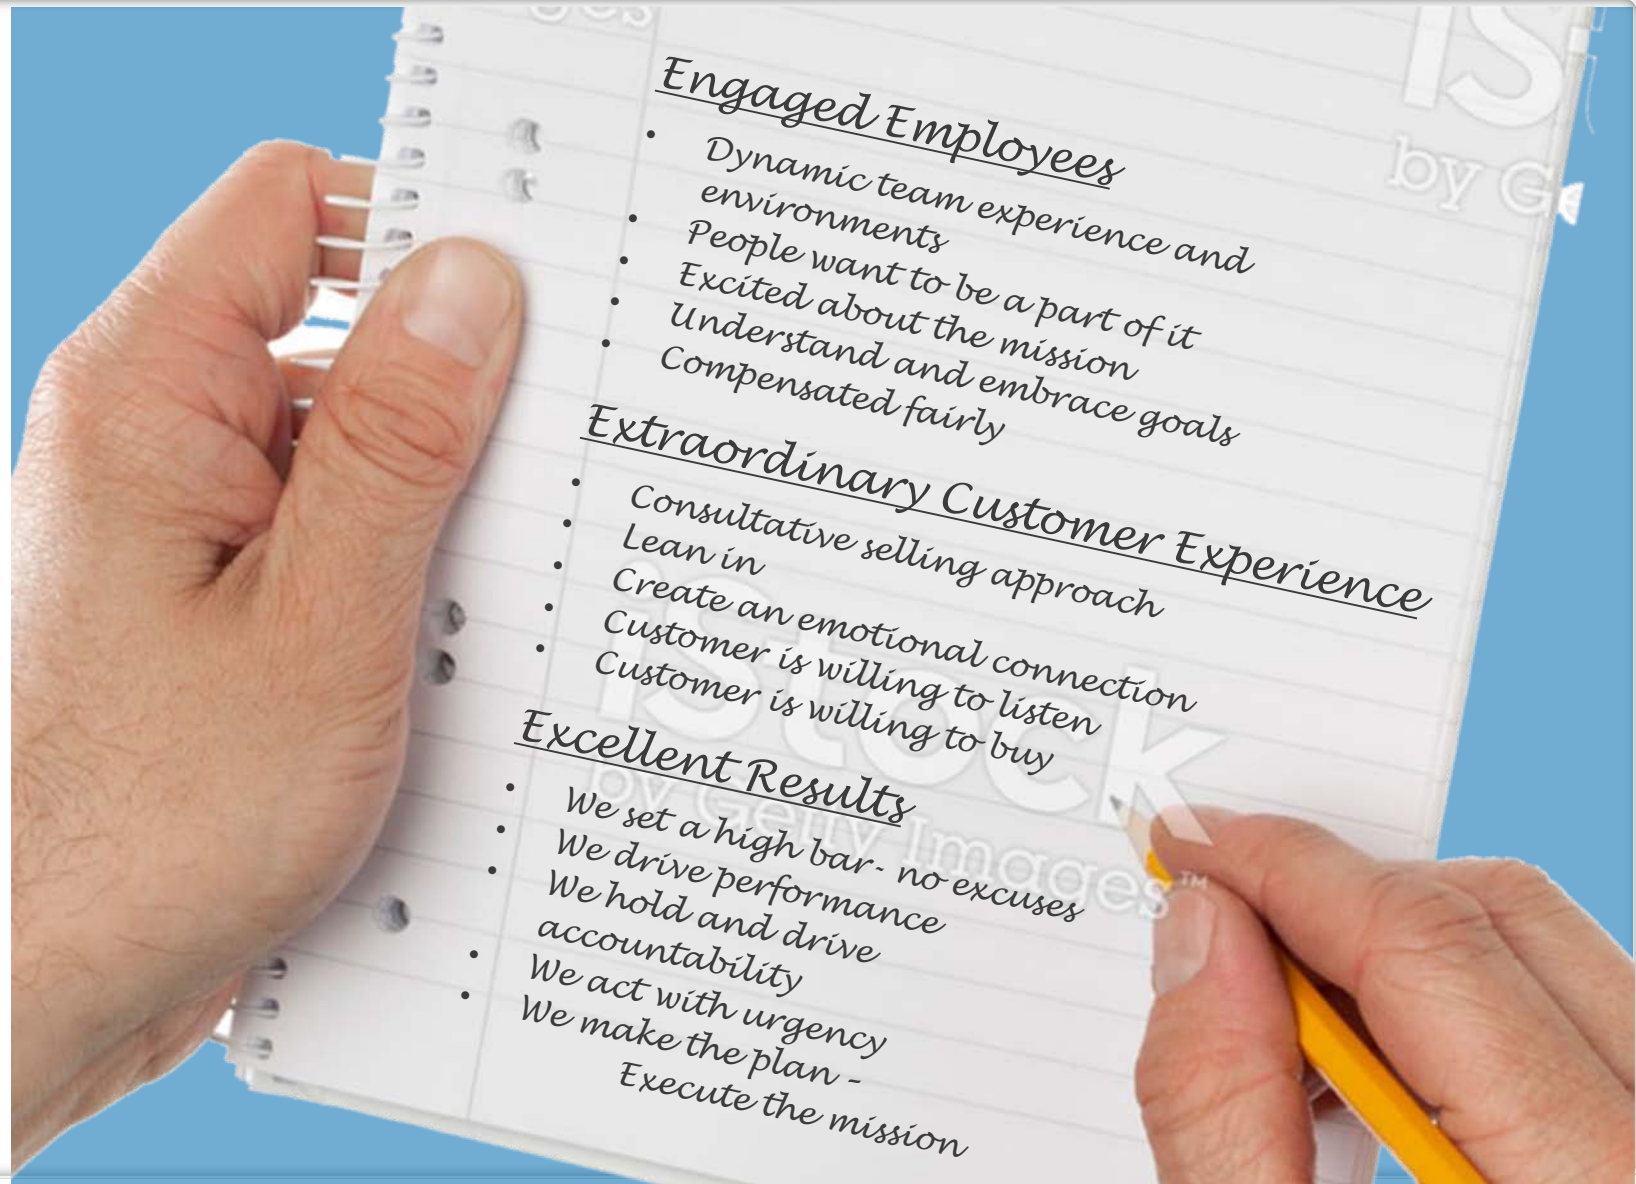 ges
iS
by G
Engaged Employees
• Dynamic team experience and
environments
• People want to be a part of it
• Excited about the mission
• Understand and embrace goals
• Compensated fairly
Extraordinary Customer Experience
• Consultative selling approach
• Lean in
• Create an emotional connection
• Customer is willing to listen
• Customer is willing to buy
Excellent Results
• We set a high bar- no excuses
• We drive performance
• We hold and drive
accountability
• We act with urgency
• We make the plan –
Execute the mission
iStock
by Getty Images™